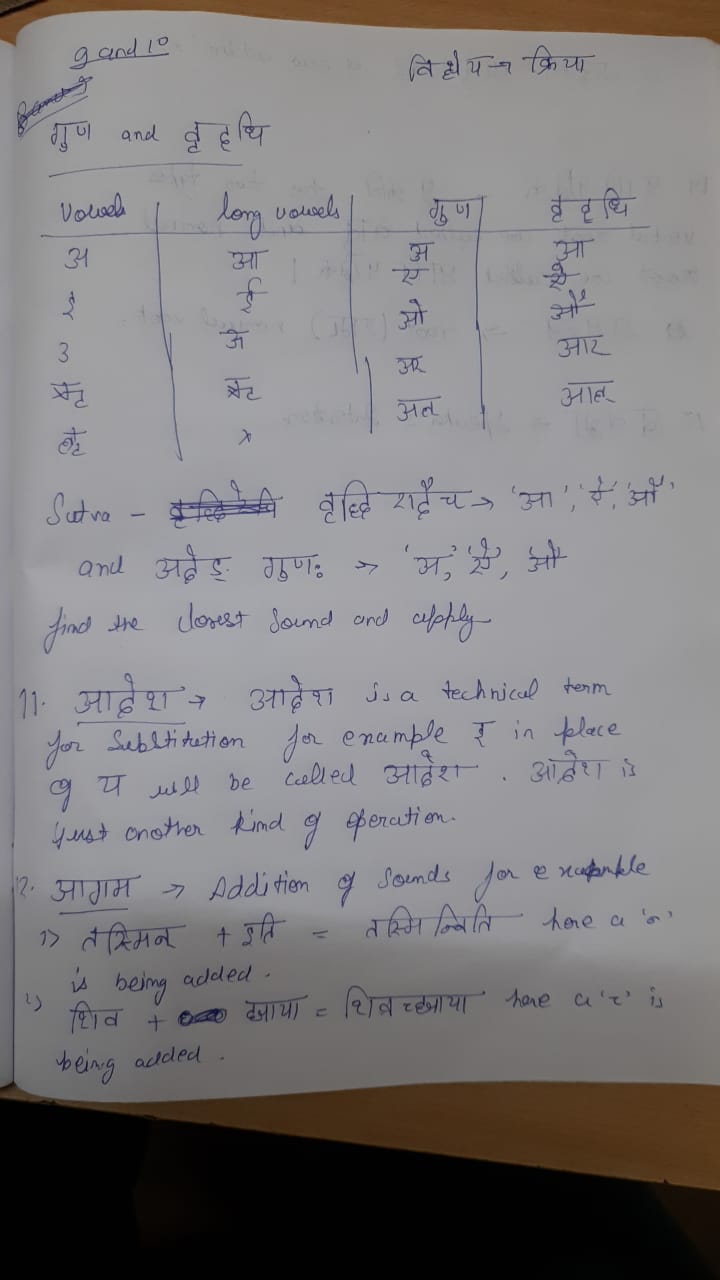 9 and 10
विधेय → क्रिया
गुण and वृद्धि
vowels long vowels गुण वृद्धि
अ आ अ आ
इ ई ए ऐ
उ ऊ ओ औ
ऋ ॠ अर आर
लृ × अल आल
Sutra - वृद्धि रादैच → 'आ', 'ऐ', 'औ'
and अदेङ् गुणः → 'अ', 'ऐ', 'औ'
find the closest sound and apply
11. आदेश → आदेश is a technical term
for Substitution for example इ in place
of य will be called आदेश. आदेश is
just another kind of operation.
12. आगम → Addition of Sounds for example
1) तस्मिन + इति = तस्मिन्निति here a 'न'
is being added.
2) शिव + छाया = शिवच्छाया here a 'च' is
being added.